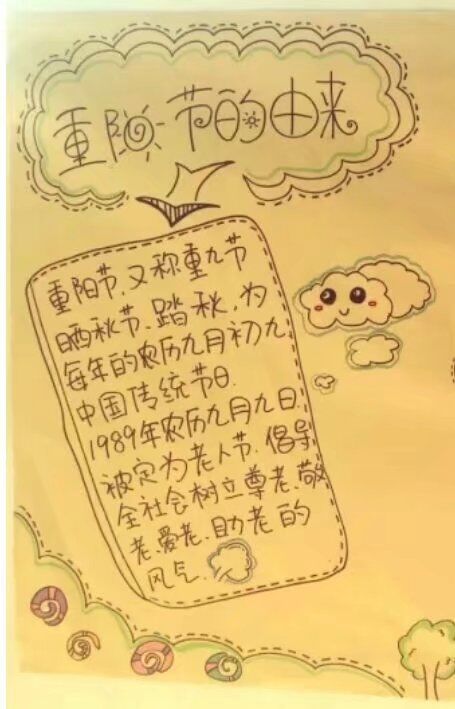 重阳节的由来
重阳节,又称重九节
晒秋节、踏秋,为
每年的农历九月初九,
中国传统节日.
1989年农历九月九日
被定为老人节.倡导
全社会树立尊老.敬
老.爱老.助老的
风气.